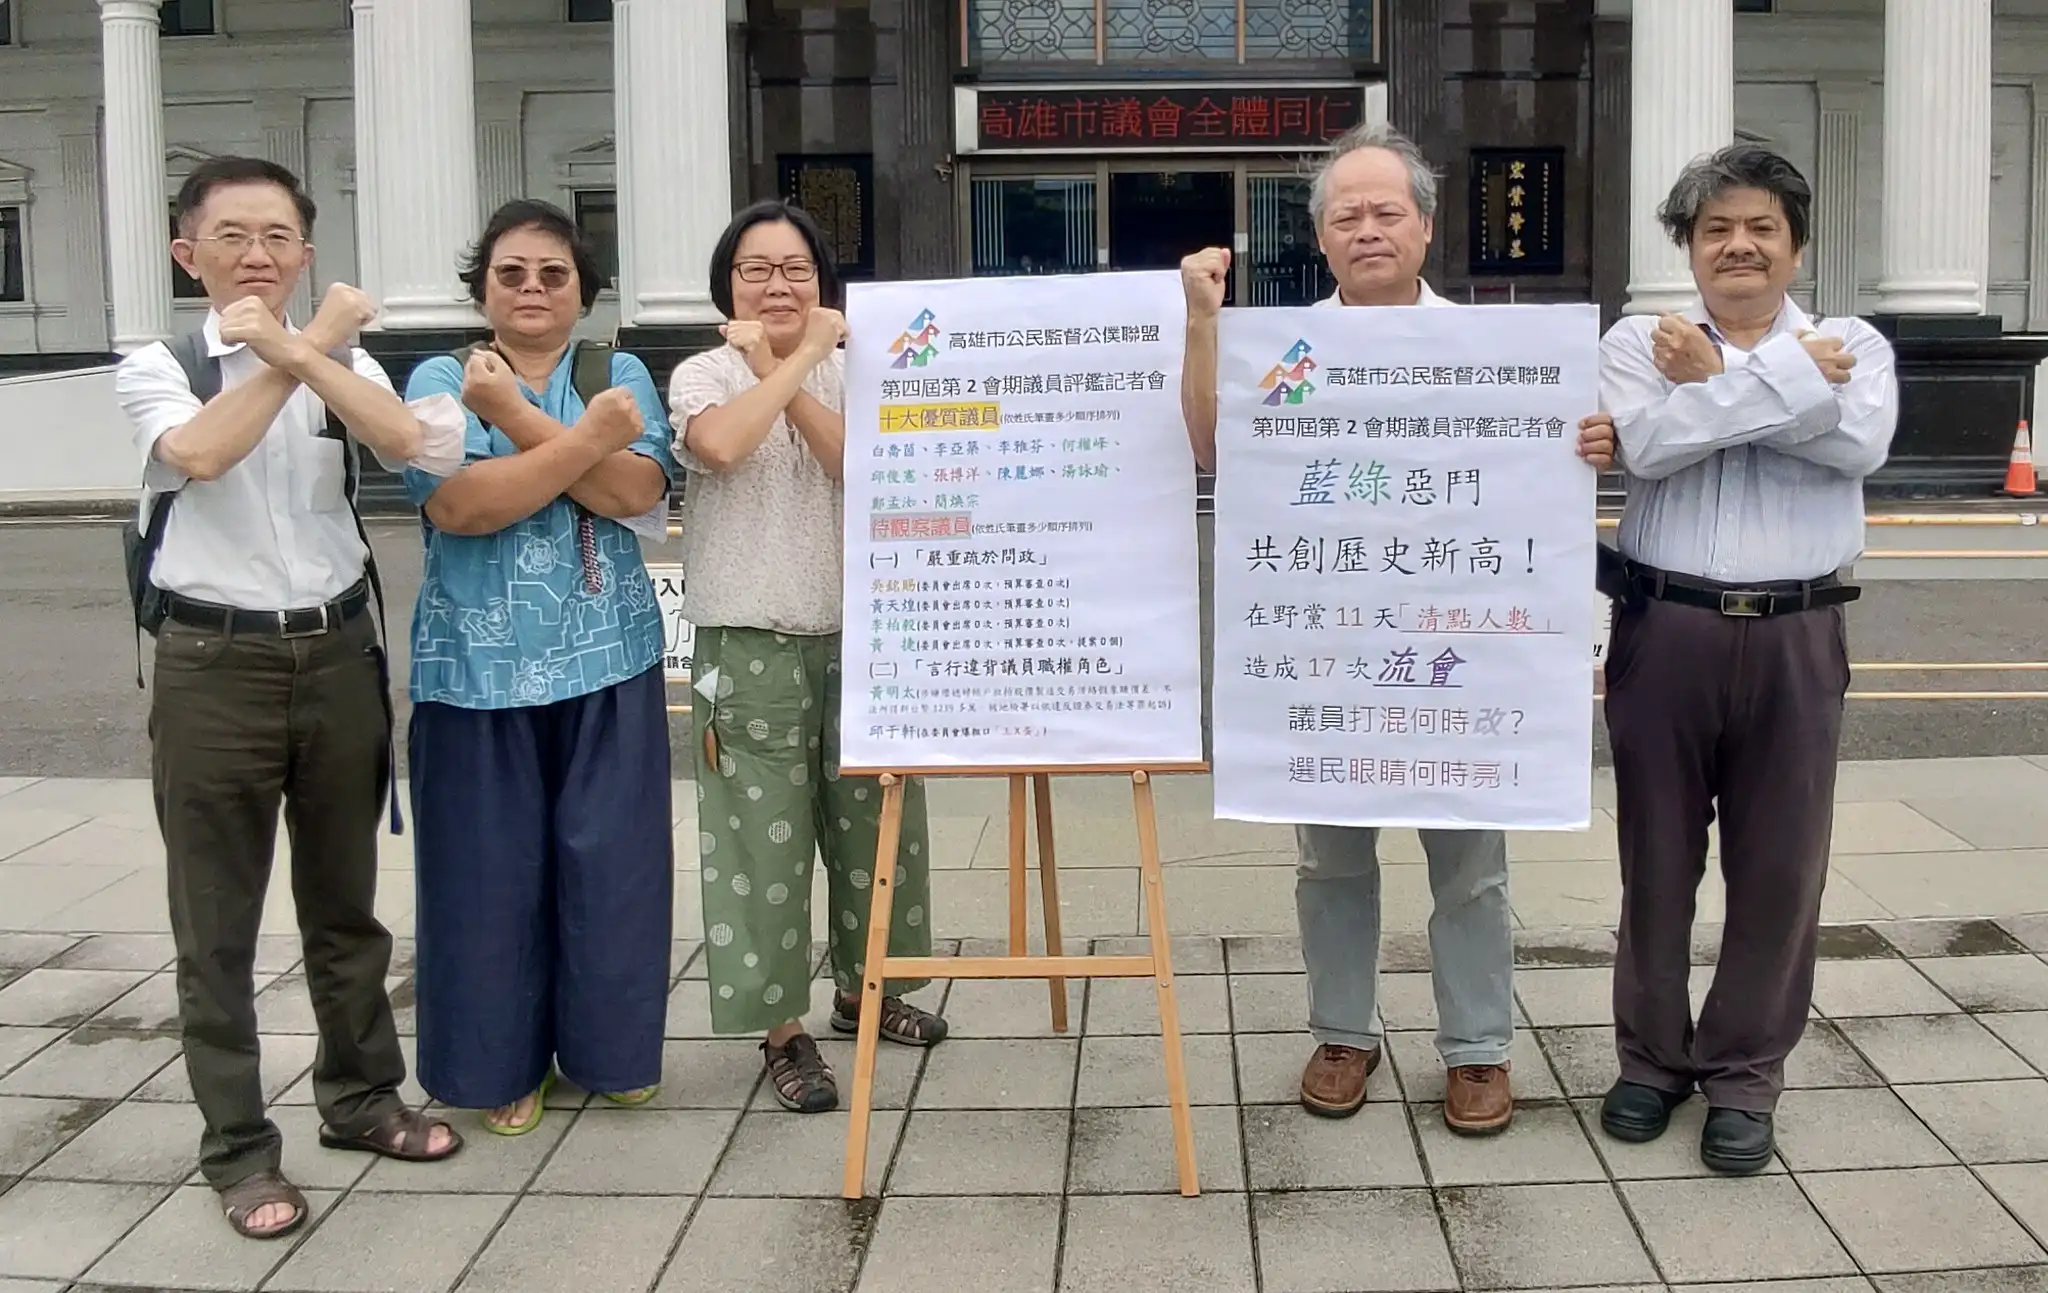 高雄市議會全體同仁
宏業肇基
高雄市公民監督公僕聯盟
第四屆第2會期議員評鑑記者會
十大優質議員(依姓氏筆畫多少順序排列)
白喬茵、李亞築、李雅芬、何權峰、
邱俊憲、張博洋、陳麗娜、湯詠瑜、
鄭孟洳、簡煥宗
待觀察議員(依姓氏筆畫多少順序排列)
(一)「嚴重疏於問政」
吳銘賜(委員會出席0次，預算審查0次)
黃天煌(委員會出席0次，預算審查0次)
李柏毅(委員會出席0次，預算審查0次)
黃 捷(委員會出席0次，預算審查0次，提案0個)
(二)「言行違背議員職權角色」
黃明太
法所得新台幣1239多萬，被地檢署以依違反證券交易法等罪起訴)
邱于軒(在委員會爆粗口「王X蛋」)
高雄市公民監督公僕聯盟
第四屆第2會期議員評鑑記者會
藍綠惡鬥
共創歷史新高！
在野黨11天「清點人數」
造成17次流會
議員打混何時改？
選民眼睛何時亮！